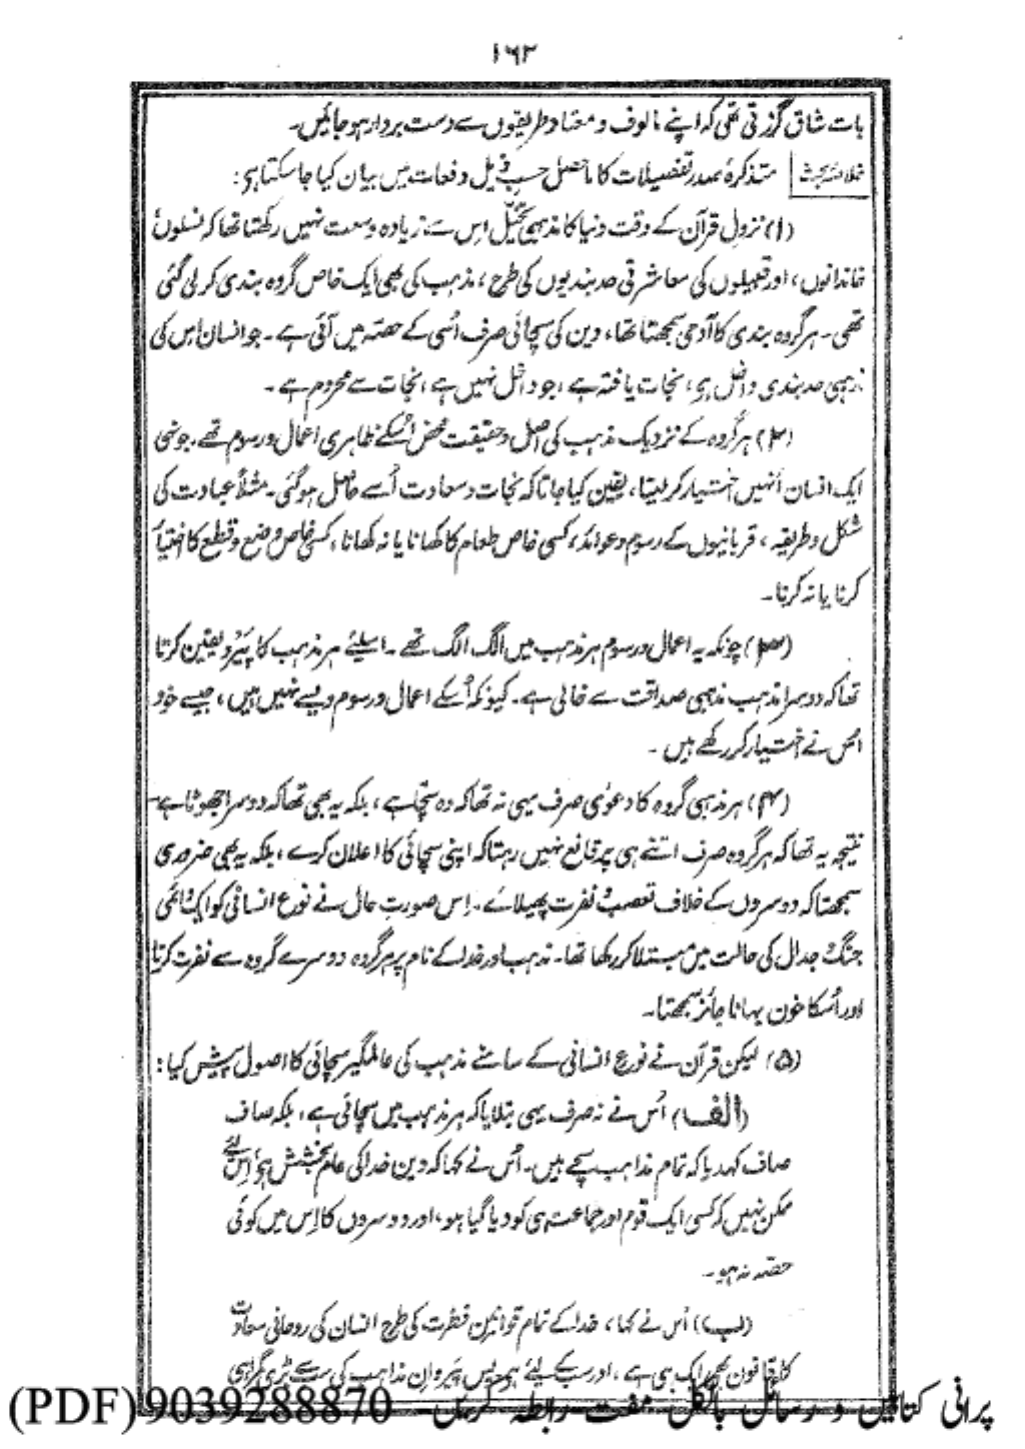 ۱۶۲
بات شاق گزرتی تھی کہ اپنے مالوف و معتاد طریقوں سے دست بردار ہو جائیں۔
خلاصۂ بحث
متذکرۂ صدر تفصیلات کا ماحصل حسبِ ذیل دفعات میں بیان کیا جا سکتا ہے:
(۱) نزولِ قرآن کے وقت دنیا کا مذہبی تخیّل اس سے زیادہ وسعت نہیں رکھتا تھا کہ نسلوں،
خاندانوں، اور قبیلوں کی معاشرتی حد بندیوں کی طرح، مذہب کی بھی ایک خاص گروہ بندی کر لی گئی
تھی۔ ہر گروہ بندی کا آدمی سمجھتا تھا، دین کی سچائی صرف اُسی کے حصّہ میں آئی ہے۔ جو انسان اِس کی
مذہبی حد بندی داخل ہے، نجات یافتہ ہے، جو داخل نہیں ہے، نجات سے محروم ہے۔
(۲) ہر گروہ کے نزدیک مذہب کی اصل و حقیقت محض اُسکے ظاہری اعمال و رسوم تھے۔ جونہی
ایک انسان اُنہیں اختیار کر لیتا، یقین کیا جاتا کہ نجات و سعادت اُسے حاصل ہو گئی۔ مثلاً عبادت کی
شکل و طریقہ، قربانیوں کے رسوم و عوائد، کسی خاص طعام کا کھانا یا نہ کھانا، کسی خاص وضع و قطع کا اختیار
کرنا یا نہ کرنا۔
(۳) چونکہ یہ اعمال و رسوم ہر مذہب میں الگ الگ تھے۔ اسلئے ہر مذہب کا پَیرَو یقین کرتا
تھا کہ دوسرا مذہب مذہبی صداقت سے خالی ہے۔ کیونکہ اُسکے اعمال و رسوم ویسے نہیں ہیں، جیسے خود
اس نے اختیار کر رکھے ہیں۔
(۴) ہر مذہبی گروہ کا دعویٰ صرف یہی نہ تھا کہ وہ سچّا ہے، بلکہ یہ بھی تھا کہ دوسرا جھوٹا ہے۔
نتیجہ یہ تھا کہ ہر گروہ صرف اتنے ہی پر قانع نہیں رہتا کہ اپنی سچائی کا اعلان کرے، بلکہ یہ بھی ضروری
سمجھتا کہ دوسروں کے خلاف تعصب و نفرت پھیلائے۔ اِس صورتِ حال نے نوعِ انسانی کو ایک دائمی
جنگ و جدال کی حالت میں مبتلا کر رکھا تھا۔ مذہب اور خدا کے نام پر ہر گروہ دوسرے گروہ سے نفرت کرتا
اور اُسکا خون بہانا جائز سمجھتا۔
(۵) لیکن قرآن نے نوعِ انسانی کے سامنے مذہب کی عالمگیر سچائی کا اصول پیش کیا:
(الف) اُس نے نہ صرف یہی بتلایا کہ ہر مذہب میں سچائی ہے، بلکہ صاف
صاف کہدیا کہ تمام مذاہب سچے ہیں۔ اُس نے کہا کہ دین خدا کی عام بخشش ہے، اِس لئے
ممکن نہیں کہ کسی ایک قوم اور جماعت ہی کو دیا گیا ہو، اور دوسروں کا اِس میں کوئی
حصّہ نہ ہو۔
(ب) اُس نے کہا، خدا کے تمام قوانینِ فطرت کی طرح انسان کی روحانی سعادت
کا قانون بھی ایک ہی ہے، اور سب کے لئے ہے۔ پس پیروانِ مذاہب کی سب سے بڑی گمراہی
پرانی کتابیں و رسائل بالکل مفت رابطہ کریں۔ 9039288870 (PDF)